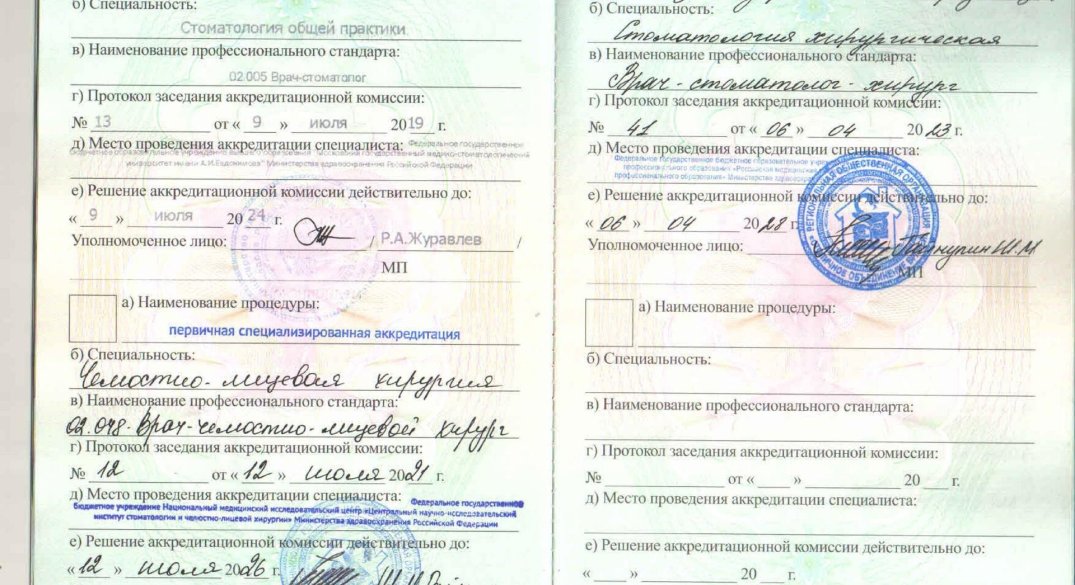 б) Специальность:
Стоматология общей практики
в) Наименование профессионального стандарта:
02.005 Врач-стоматолог
г) Протокол заседания аккредитационной комиссии:
№ 13 от « 9 » июля 2019 г.
д) Место проведения аккредитации специалиста: Федеральное государственное
бюджетное образовательное учреждение высшего образования "Московский государственный медико-стоматологический
университет имени А.И.Евдокимова" Министерства здравоохранения Российской Федерации
е) Решение аккредитационной комиссии действительно до:
« 9 » июля 20 24 г.
Уполномоченное лицо: / Р.А.Журавлев /
МП
а) Наименование процедуры:
первичная специализированная аккредитация
б) Специальность:
Челюстно-лицевая хирургия
в) Наименование профессионального стандарта:
02.048. Врач-челюстно-лицевой хирург
г) Протокол заседания аккредитационной комиссии:
№ 12 от « 12 » июля 2021 г.
д) Место проведения аккредитации специалиста: Федеральное государственное
бюджетное учреждение Национальный медицинский исследовательский центр «Центральный научно-исследовательский
институт стоматологии и челюстно-лицевой хирургии» Министерства здравоохранения Российской Федерации
е) Решение аккредитационной комиссии действительно до:
« 12 » июля 2026 г.
б) Специальность:
Стоматология хирургическая
в) Наименование профессионального стандарта:
Врач-стоматолог-хирург
г) Протокол заседания аккредитационной комиссии:
№ 41 от « 06 » 04 2023 г.
д) Место проведения аккредитации специалиста:
Федеральное государственное бюджетное образовательное
профессионального образования «Российская медицинская
профессионального образования» Министерства
е) Решение аккредитационной комиссии действительно до:
« 06 » 04 2028 г.
Уполномоченное лицо:
МП
РЕГИОНАЛЬНАЯ ОБЩЕСТВЕННАЯ ОРГАНИЗАЦИЯ
а) Наименование процедуры:
б) Специальность:
в) Наименование профессионального стандарта:
г) Протокол заседания аккредитационной комиссии:
№ от « » 20 г.
д) Место проведения аккредитации специалиста:
е) Решение аккредитационной комиссии действительно до:
« » 20 г.